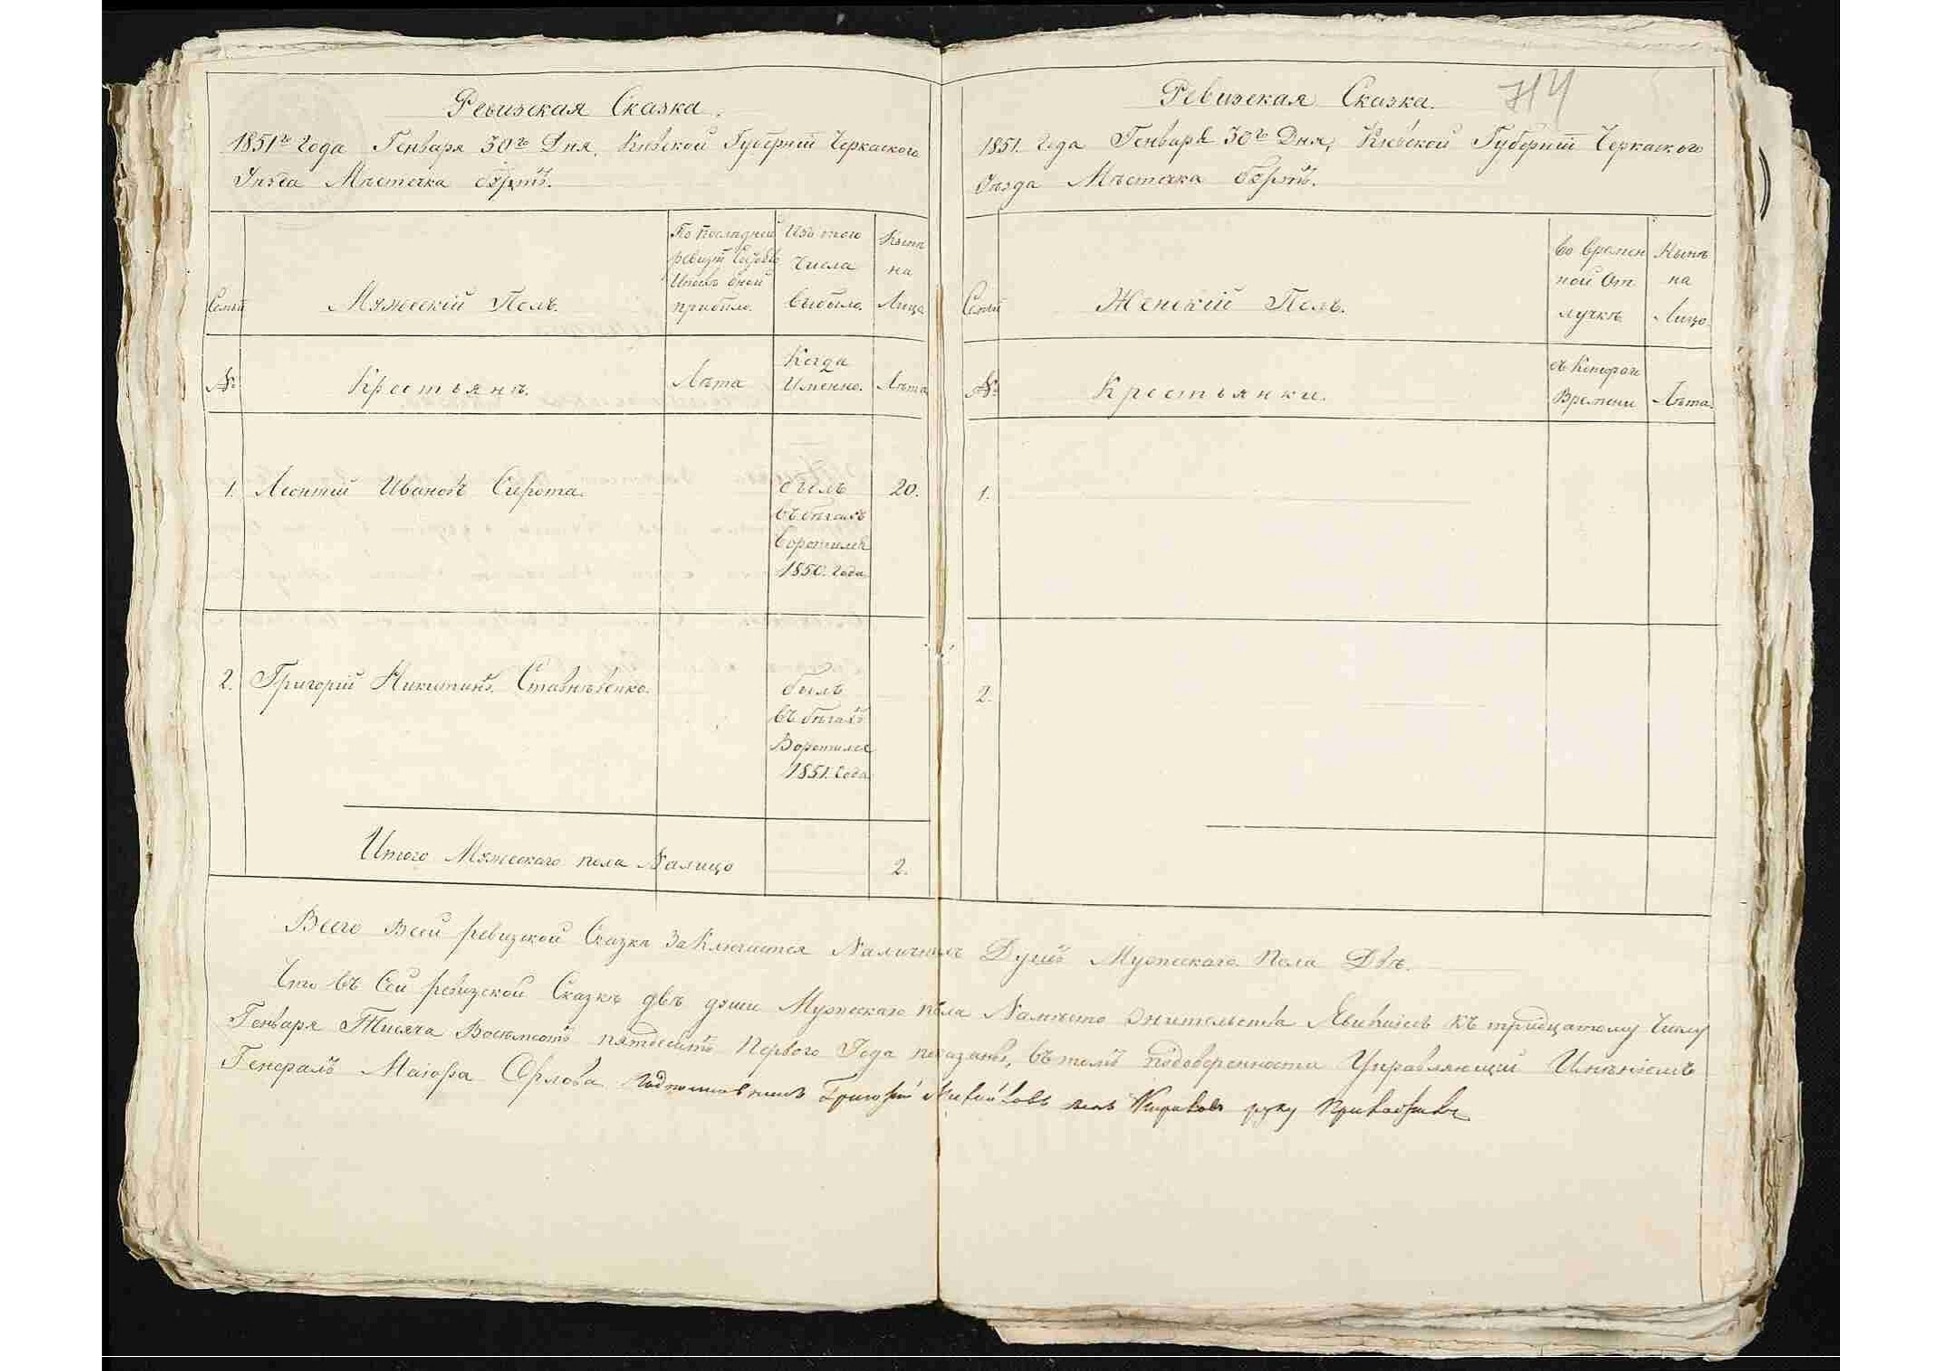 Ревизская Сказка.
1851го Года Генваря 30го Дня, Киевской Губернiи Черкаского
Уезда Местечка
Семьи
Мужескiй Полъ.
По последней
ревизiи
прибыло.
Изъ того
числа
выбыло.
Ныне
на
Лицо
№
Крестьяне.
Лета
Когда
Именно.
Лета
1. Леонтiй Ивановъ Сирота.
былъ
въ бегахъ
Воротился
1850. Года
20.
2. Григорiй Никитинъ
былъ
въ бегахъ
Воротился
1851. Года
Итого Мужескаго пола Налицо
2.
Ревизская Сказка.
1851. Года Генваря 30го Дня, Киевской Губернiи Черкаского
Уезда Местечка
Семьи
Женскiй Полъ.
Во Времен
ной От
лучке
Ныне
на
Лицо.
№
Крестьянки.
съ Которого
Времени
Лета.
1.
2.
Всего Всей ревизской Сказке Заключается Наличныхъ Душъ Мужескаго Пола Две.
Что въ Сей ревизской Сказке две души Мужескаго пола къ тридцатому Числу
Генваря Тисяча Восемсотъ пятдесятъ Первого Года показаны, въ томъ Управляющiй Именiемъ
Генералъ Маiора Орлова Григорiй руку